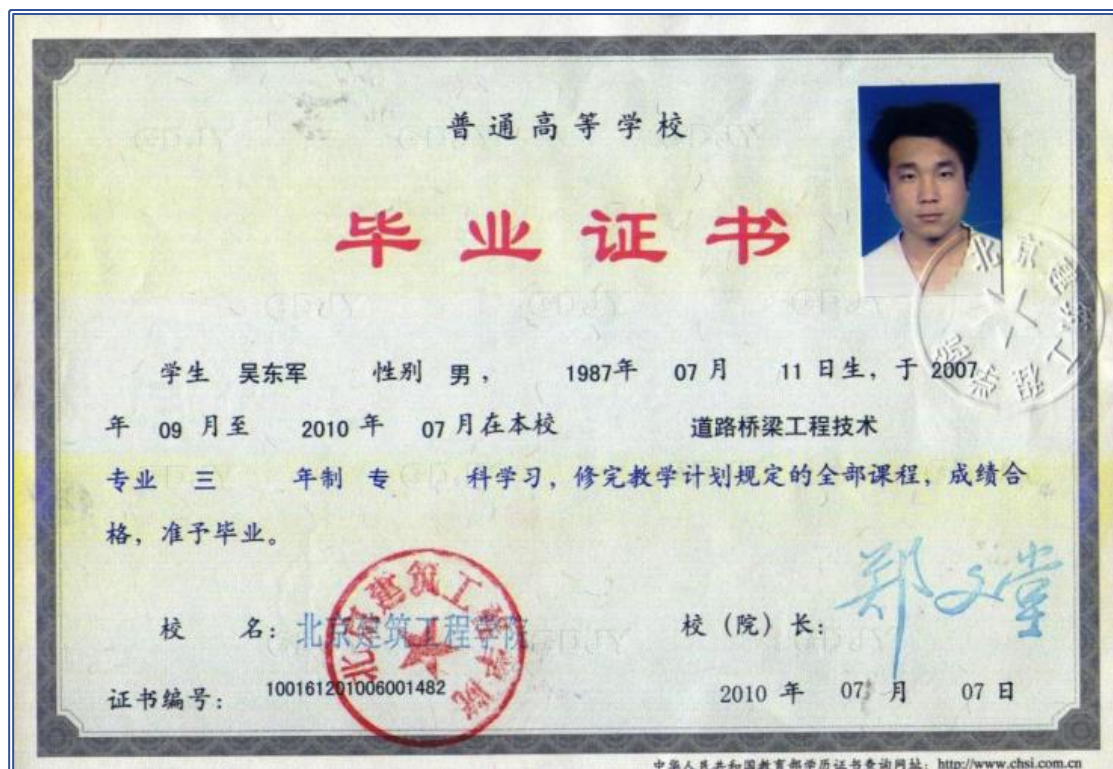 普通高等学校
毕业证书
学生 吴东军 性别 男， 1987年 07 月 11 日生，于 2007
年 09 月至 2010 年 07 月在本校 道路桥梁工程技术
专业 三 年制 专 科学习，修完教学计划规定的全部课程，成绩合
格，准予毕业。
校 名：北京建筑工程学院
北京建筑工程学院
校（院）长：郑文堂
证书编号：100161201006001482
2010 年 07 月 07 日
中华人民共和国教育部学历证书查询网址：http://www.chsi.com.cn